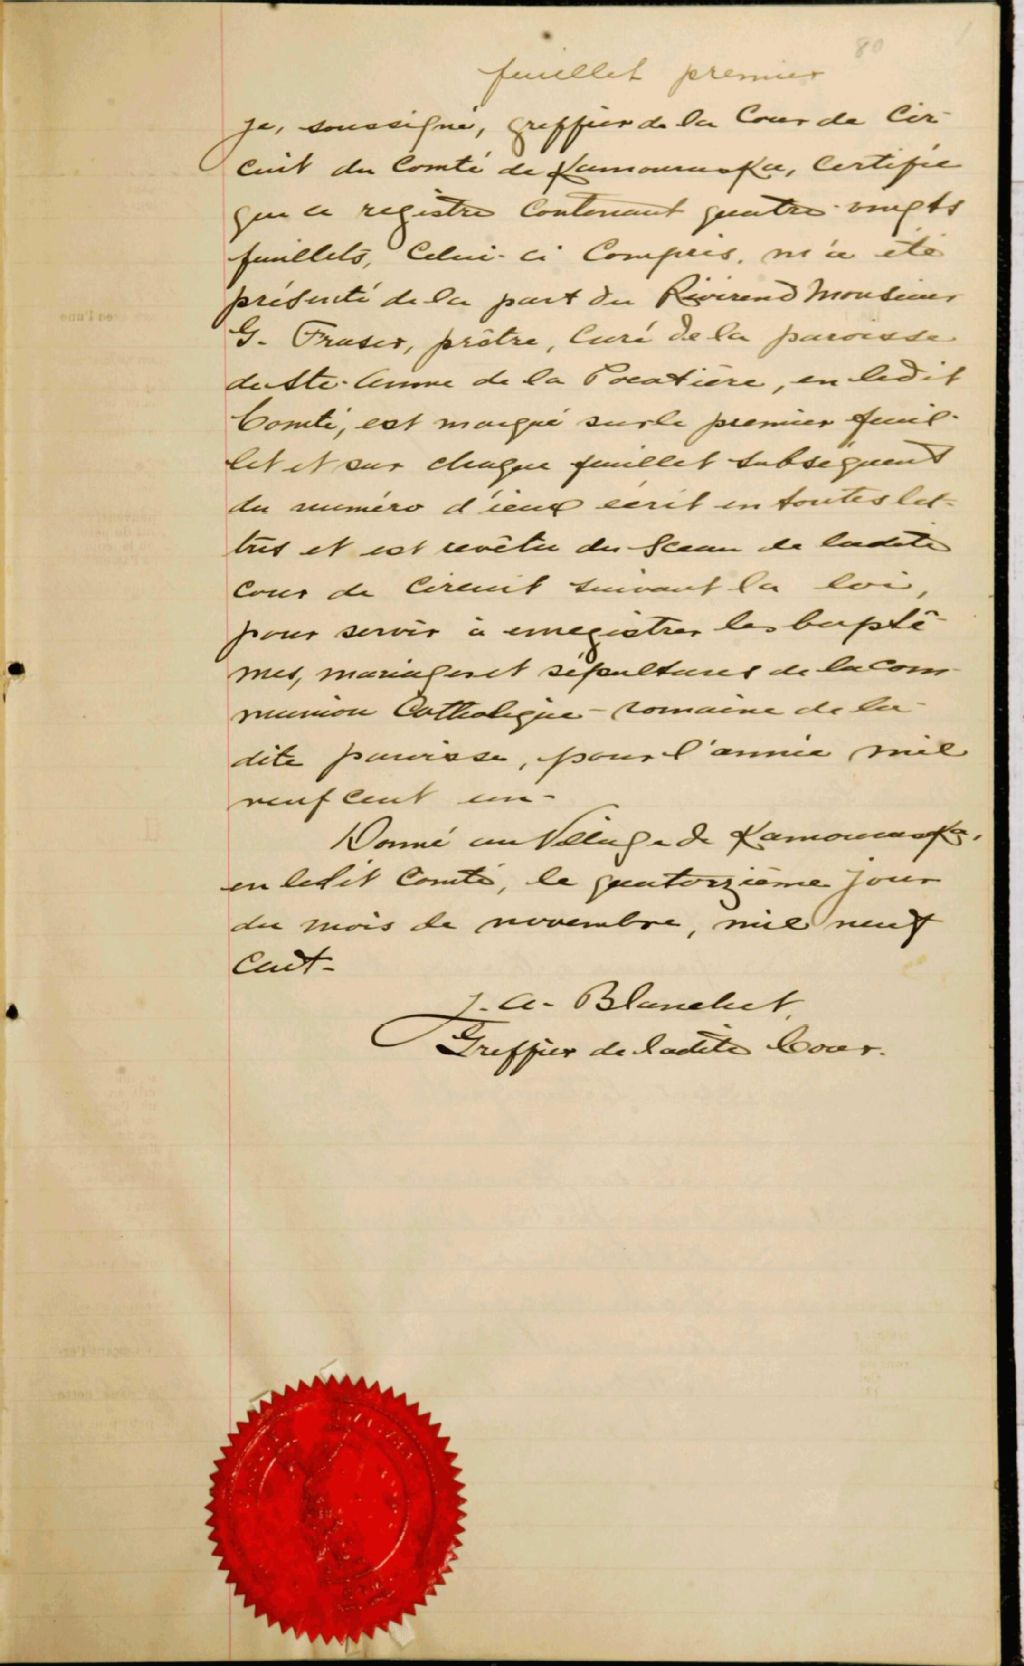 80
feuillet premier
Je, soussigné, greffier de la Cour de Cir-
cuit du Comté de Kamouraska, Certifie
que ce registre Contenant quatre-vingts
feuillets, Celui-ci Compris, m'a été
présenté de la part du Révérend Monsieur
G. Fraser, prêtre, Curé de la paroisse
de Ste-Anne de la Pocatière, en ledit
Comté, est marqué sur le premier feuil-
let et sur chaque feuillet subséquent
du numéro d'iceux écrit en toutes let-
tres et est revêtu du Sceau de ladite
Cour de Circuit suivant la loi,
pour servir à enregistrer les baptê-
mes, mariages et sépultures de la com-
munion Catholique-romaine de la
dite paroisse, pour l'année mil
neuf cent un-
Donné au Village de Kamouraska,
en ledit Comté, le quatorzième jour
du mois de novembre, mil neuf
Cent-
J. A. Blanchet,
Greffier de ladite Cour.